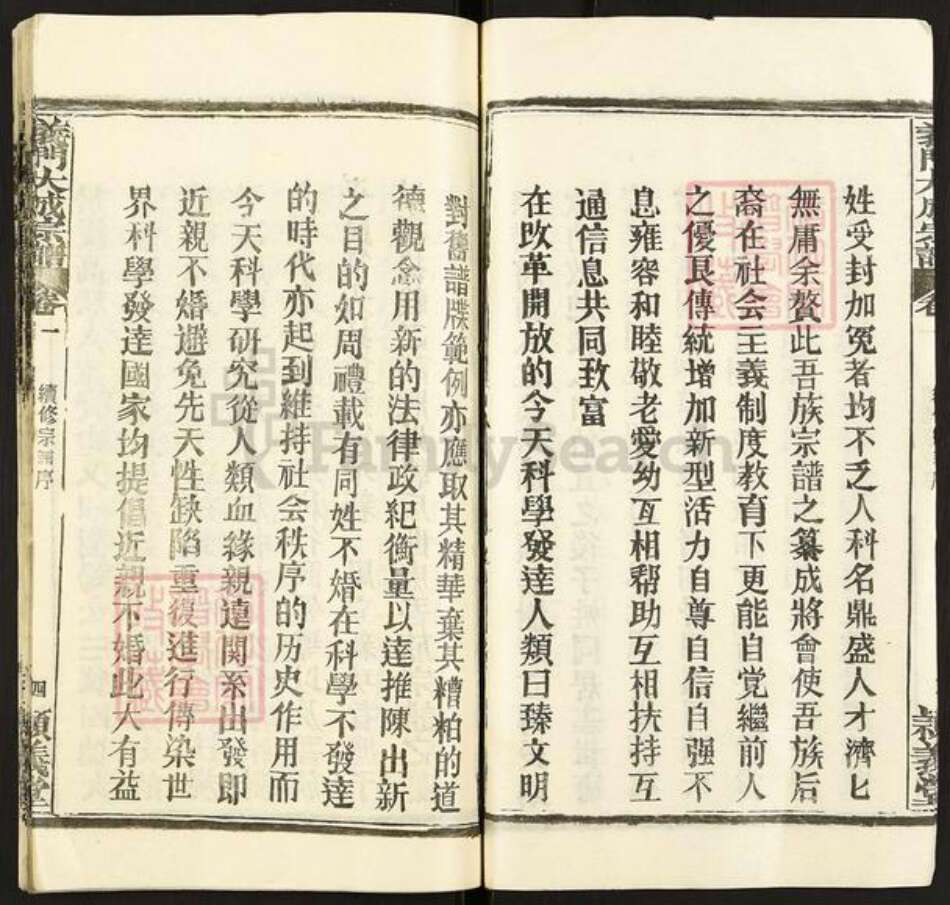 姓受封加冕者均不乏人科名鼎盛人才濟匕
無庸余赘此吾族宗譜之纂成將會使吾族后
裔在社会主義制度教育下更能自觉繼前人
之優良傳統增加新型活力自尊自信自强不
息雍容和睦敬老愛幼互相帮助互相扶持互
通信息共同致富
在改革開放的今天科學發達人類日臻文明
對舊譜牒範例亦應取其精華棄其糟粕的道
德觀念用新的法律政紀衡量以達推陳出新
之目的如周禮載有同姓不婚在科學不發達
的時代亦起到維持社会秩序的历史作用而
今天科學研究從人類血緣親遠関系出發即
近親不婚避免先天性缺陷重復進行傳染世
界科學發達國家均提倡近親不婚此大有益
義門大成宗譜
卷一
續修宗譜序
四
顯義堂
FamilySearch